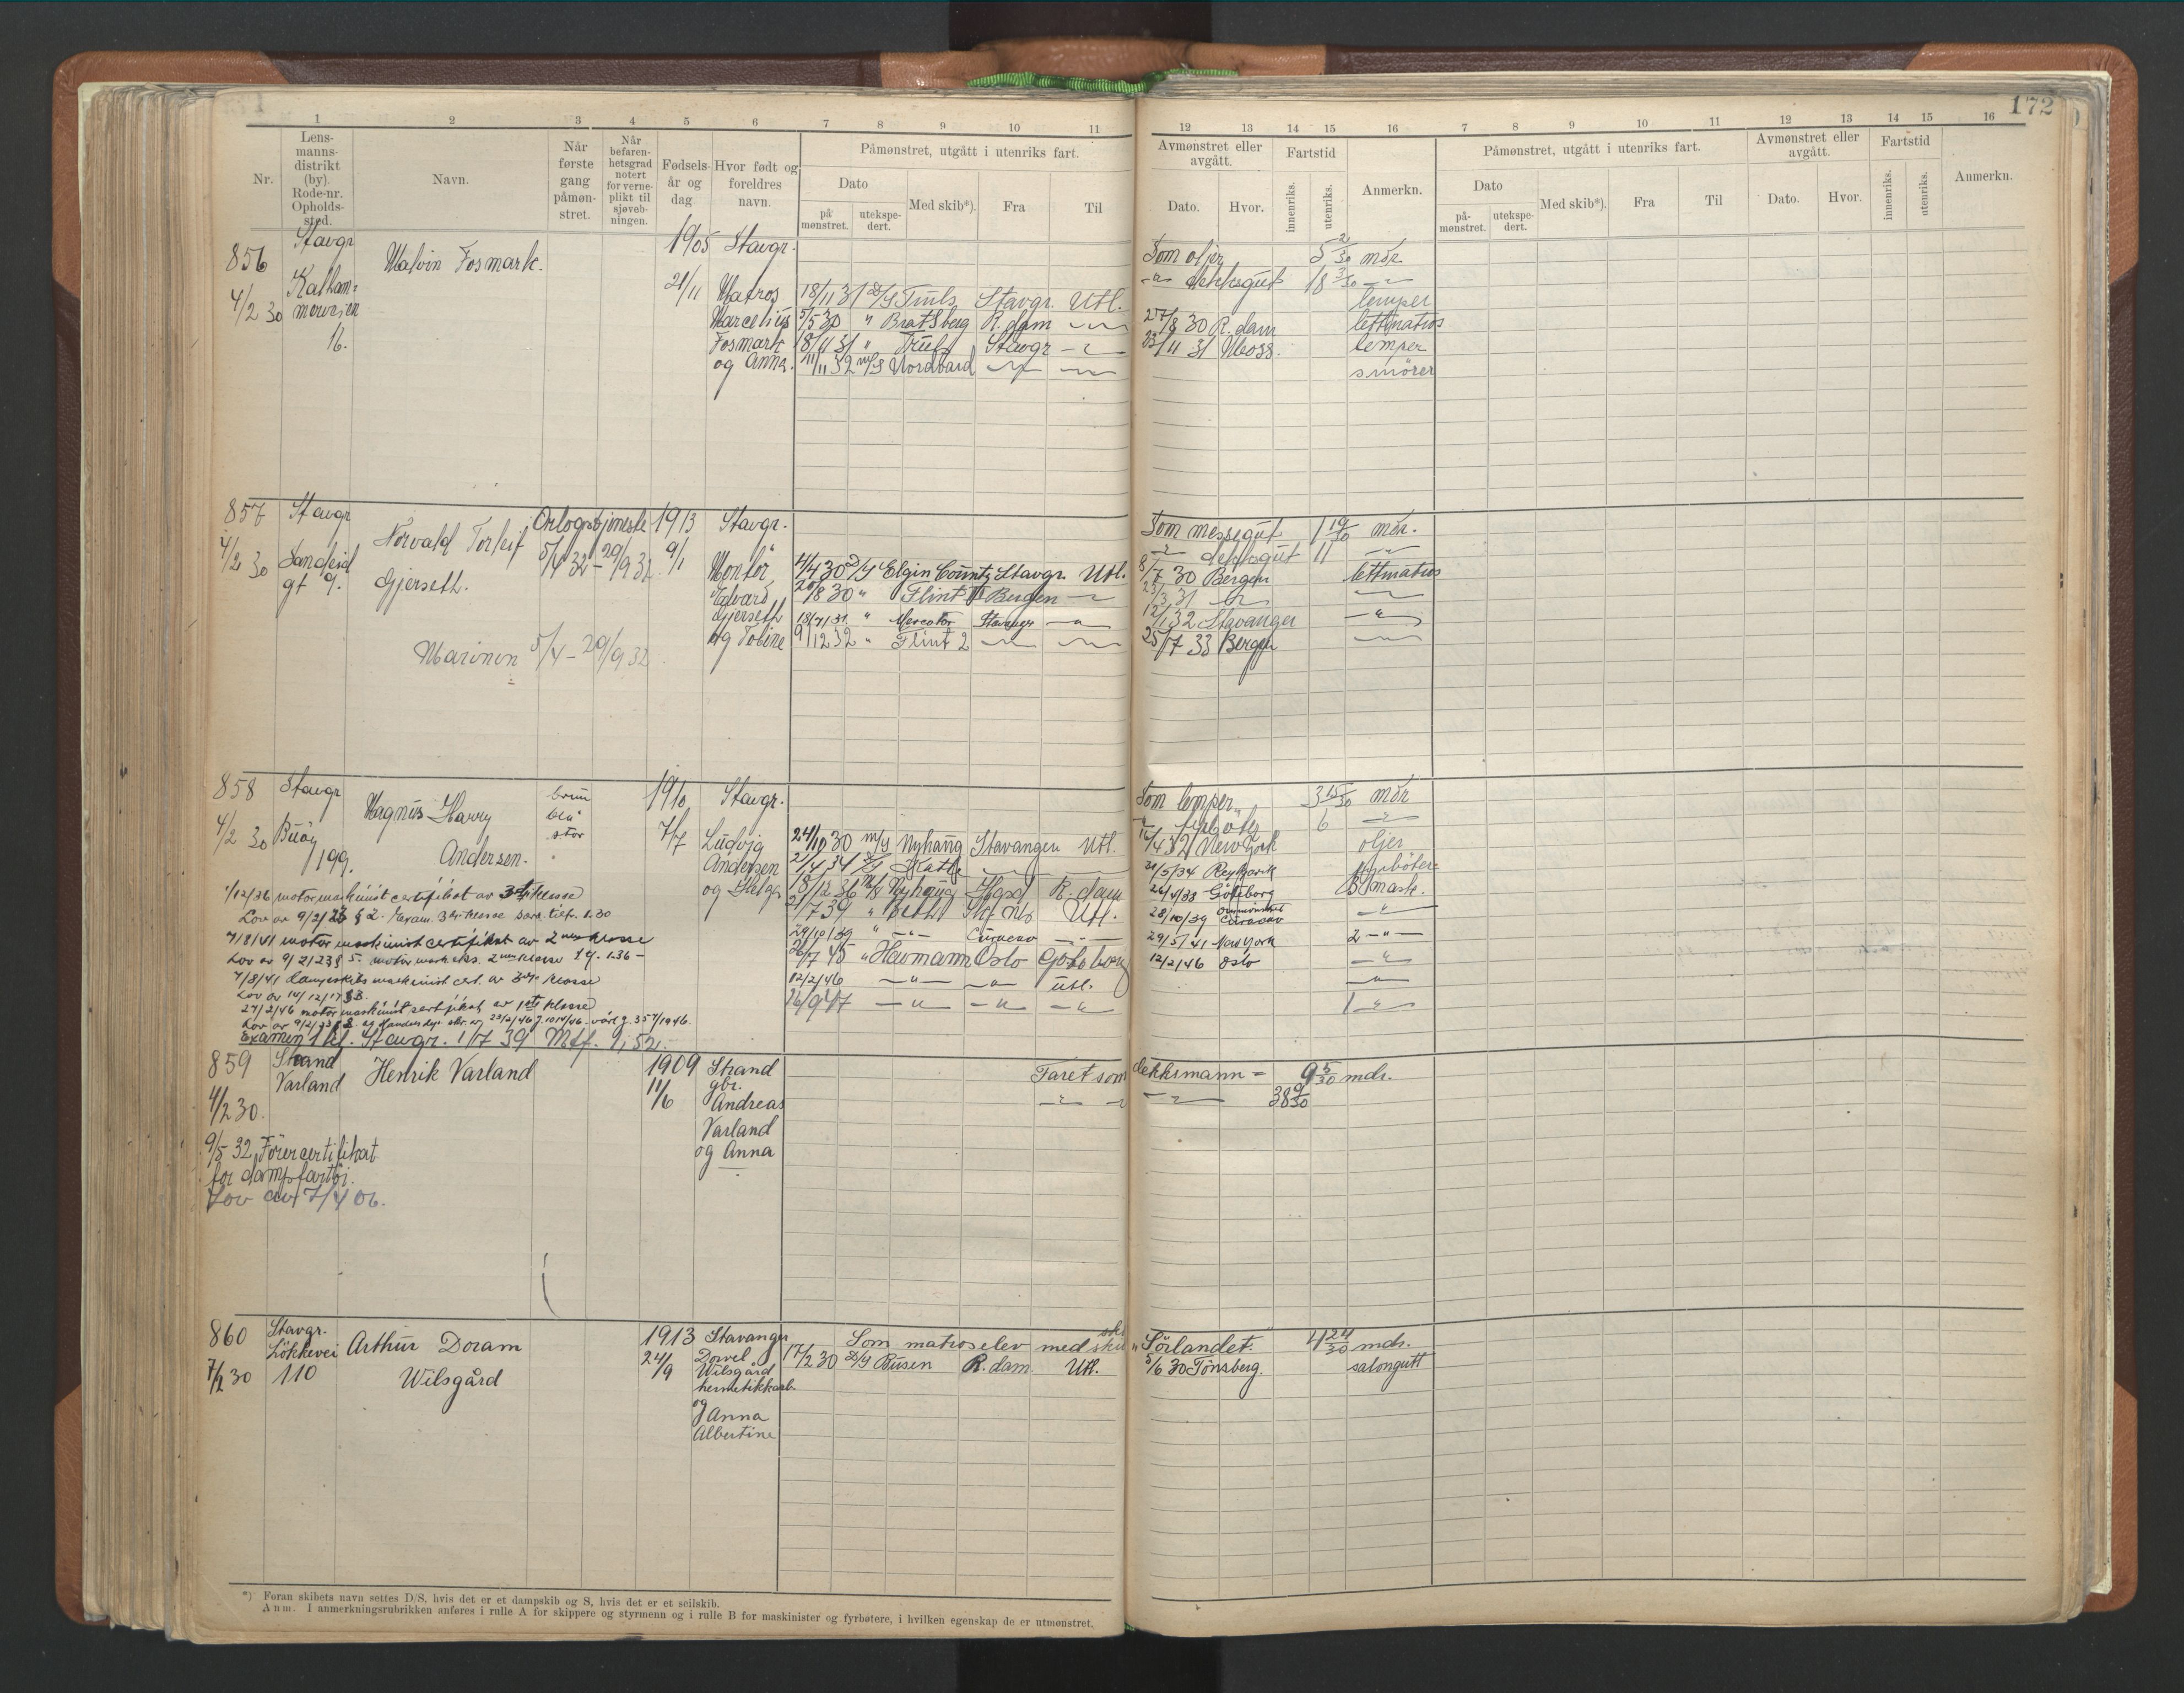 172
1 2 3 4 5 6 7 8 9 10 11 12 13 14 15 16 7 8 9 10 11 12 13 14 15 16
Nr.
Lens-
manns-
distrikt
(by).
Rode-nr.
Opholds-
sted.
Navn.
Når
første
gang
påmøn-
stret.
Når
befaren-
hetsgrad
notert
for verne-
plikt til
sjøveb-
ningen.
Fødsels-
år og
dag
Hvor født og
foreldres
navn.
Påmønstret, utgått i utenriks fart.
Dato
på
mønstret.
utekspe-
dert.
Med skib*).
Fra
Til
Avmønstret eller
avgått.
Dato.
Hvor.
Fartstid
innenriks.
utenriks.
Anmerkn.
Påmønstret, utgått i utenriks fart.
Dato
på-
mønstret.
utekspe-
dert.
Med skib*).
Fra
Til
Avmønstret eller
avgått.
Dato.
Hvor.
Fartstid
innenriks.
utenriks.
Anmerkn.
856 Stavgr Malvin Fosmark. 1905 Stavgr. Som oljer 5 2/30 mdr
4/2 30 16. 21/11 Matros 18/11 31 D/S Truls Stavgr. Utl. -"- dekksgut 18 3/30 -"- lemper
Marcelius 5/5 30 " Bratsberg R.dam -"- 27/8 30 R.dam lettmatros
Fosmark 18/11 31 " Truls Stavgr -"- 23/11 31 Moss. lemper
og Anna. 11/11 32 m/S Nordbard -"- -"- smører
857 Stavgr Norvald Torleif Gjerseth. Orlogstjeneste 5/4 32 - 29/9 32 1913 Stavgr. Som messegut 1 19/30 mdr.
4/2 30 Sandeid gt 9. 9/1 Montør -"- dekksgut 11 -"-
4/4 30 D/S Elgin County Stavgr. Utl. 8/7 30 Bergen lettmatros
Edvard 20/8 30 " Flint Bergen -"- 23/3 31 -"- -"-
Gjerseth " Mercator Stavanger -"- 32 Stavanger -"-
og Tobine 9/12 32 " Flint 2 -"- -"- 25/7 33 Bergen -"-
Marinen 5/4 - 29/9 32
858 Stavgr Magnus Harry Andersen. brun blå stor 1910 Stavgr. Som lemper 3 15/30 mdr
4/2 30 Buøy 199. 7/7 Ludvig -"- fyrbøter 6 -"-
24/10 30 m/S Nyhaug Stavanger Utl. 16/4 32 New York oljer
Andersen 21/4 34 D/S Katla 20/5/34 Reykjavik fyrbøter
og Helga 18/12 36 M/S Nyhaug Hgsd R.dam 26/4/38 Göteborg 3 mask.
21/7 39 " Utl. 28/10/39 Curacao -"-
29/10/39 " -"- Curacao -"- 29/5/41 New York 2 -"-
26/7 45 " Havmann Oslo Göteborg 12/2/46 Oslo -"-
12/2/46 -"- -"- Utl. -"-
26/9 47 -"- -"- -"- 1 -"-
1/12/36 motormaskinist certifikat av 3dje klasse
Lov av 9/2/23 § 2. Exam. 3dje klasse
7/8/41 motor maskinist certifikat av 2nen klasse
Lov av 9/2/23 § 5.
7/8/41 dampskibs maskinist cert. av 3dje klasse
Lov av 14/12/17 § 3.
27/2/46 motormaskinist sertifikat av 1ste klasse
Examen 1 kl. Stavgr. 1/7 39 Mtf. 9,52.
859 Strand Varland Henrik Varland 1909 Strand Faret som dekksmann - 9 5/30 mdr.
4/2 30. 11/6 gbr. -"- -"- 38 9/30
Andreas
Varland
og Anna
9/5 32 Førercertifikat
for dampfartøi.
Lov av 7/4 06.
860 Stavgr. Løkkevei 110 Arthur Doram Wilsgård 1913 Stavanger Som matroselev med skol.skib "Sørlandet." 4 24/30 mdr.
7/2 30 24/9 Dorvel 17/2 30 D/S Busen R.dam. Utl. 5/6 30 Tønsberg. salongutt
Wilsgård
hermetikkarb.
og
Anna
Albertine
*) Foran skibets navn settes D/S, hvis det er et dampskib og S, hvis det er et seilskib.
Anm. I anmerkningsrubrikken anføres i rulle A for skippere og styrmenn og i rulle B for maskinister og fyrbøtere, i hvilken egenskap de er utmønstret.